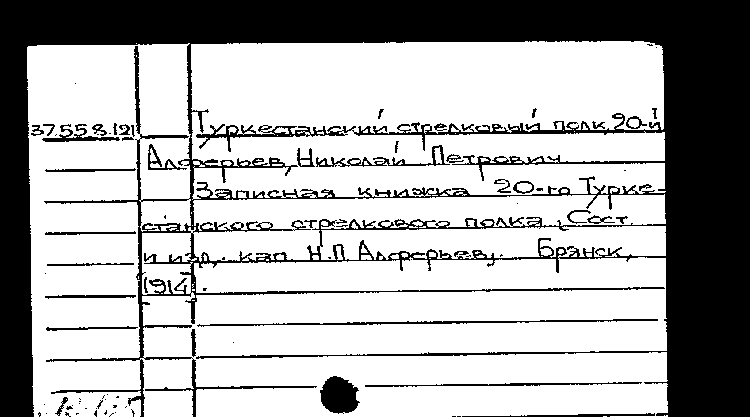 37.55.8.121 Туркестанский стрелковый полк, 20-й
Алферьев, Николай Петрович
Записная книжка 20-го Турке-
станского стрелкового полка. Сост.
и изд. кап. Н.П. Алферьев. Брянск,
[1914].